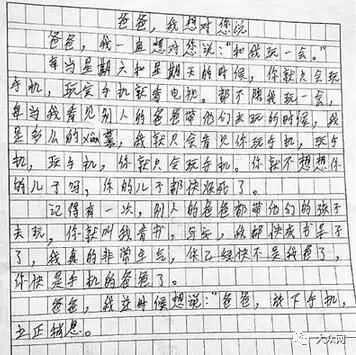 爸爸，我想对您说
爸爸，我一直想对您说：“和我玩一会。”
每当星期六和星期天的时候，你就只会玩
手机，玩完手机就看电视。都不陪我玩一会，
每当我看见别人的爸爸带他们去玩的时候，我
是多么的xiàn慕，我就只会看见你玩手机，玩手
机，玩手机，你就只会玩手机。你就不想想你
的儿子吗，你的儿子都快疯死了。
记得有一次，别人的爸爸都带他们的孩子
去玩，你就叫我看书，写字，我都快成书呆子
了，我真的非常生气，你已经快不是我爸了，
你快是手机的爸爸了。
爸爸，我这时候想说：“爸爸，放下手机，
立正稍息。
大众网